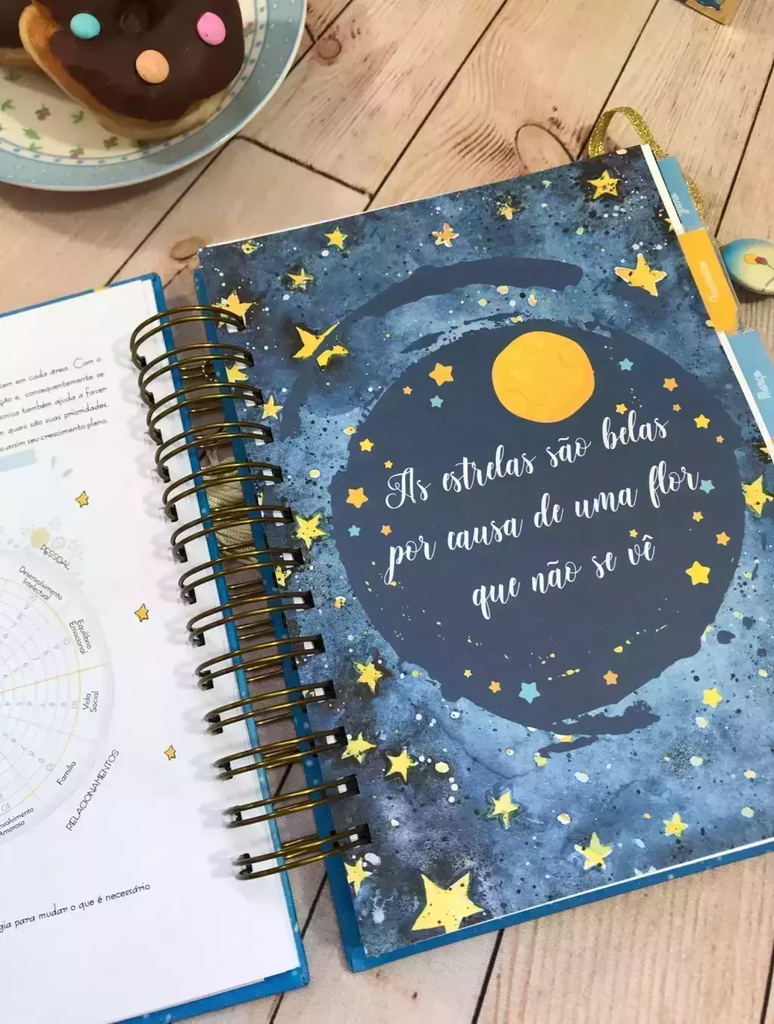 tem em cada área. Com o
ção e, consequentemente se
écnica também ajuda a fazer
quais são suas prioridades.
o assim seu crescimento pleno.
PESSOAL
Desenvolvimento
Intelectual
Equilíbrio
Emocional
Vida
Social
Família
RELACIONAMENTOS
Amoroso
gia para mudar o que é necessário
As estrelas são belas
por causa de uma flor
que não se vê
Março